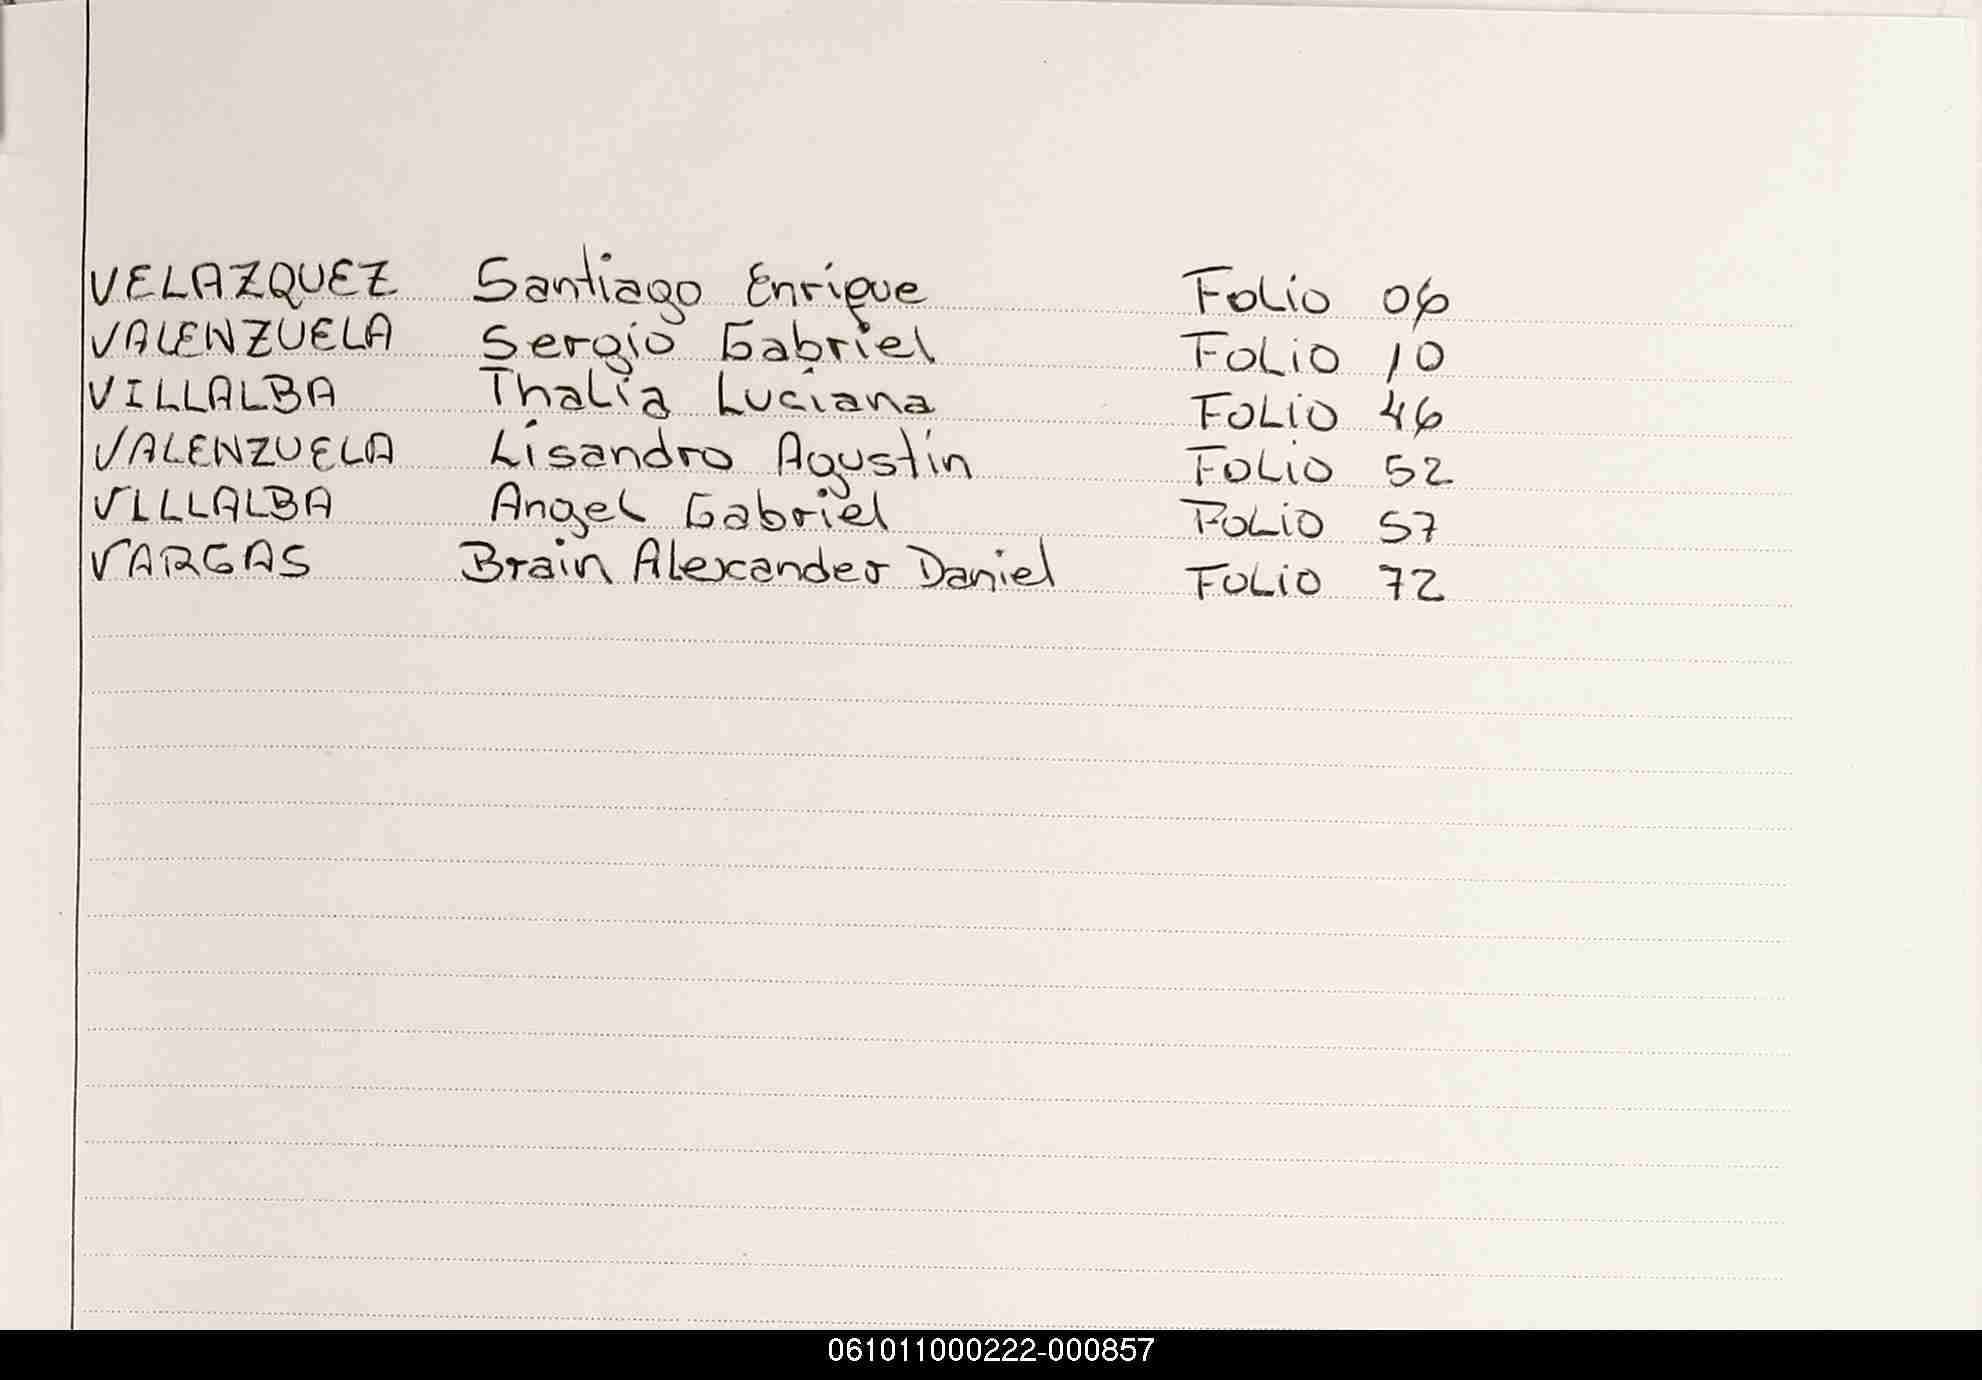 VELAZQUEZ Santiago Enrique Folio 06
VALENZUELA Sergio Gabriel Folio 10
VILLALBA Thalia Luciana Folio 46
VALENZUELA Lisandro Agustin Folio 52
VILLALBA Angel Gabriel Folio 57
VARGAS Brain Alexander Daniel Folio 72
061011000222-000857